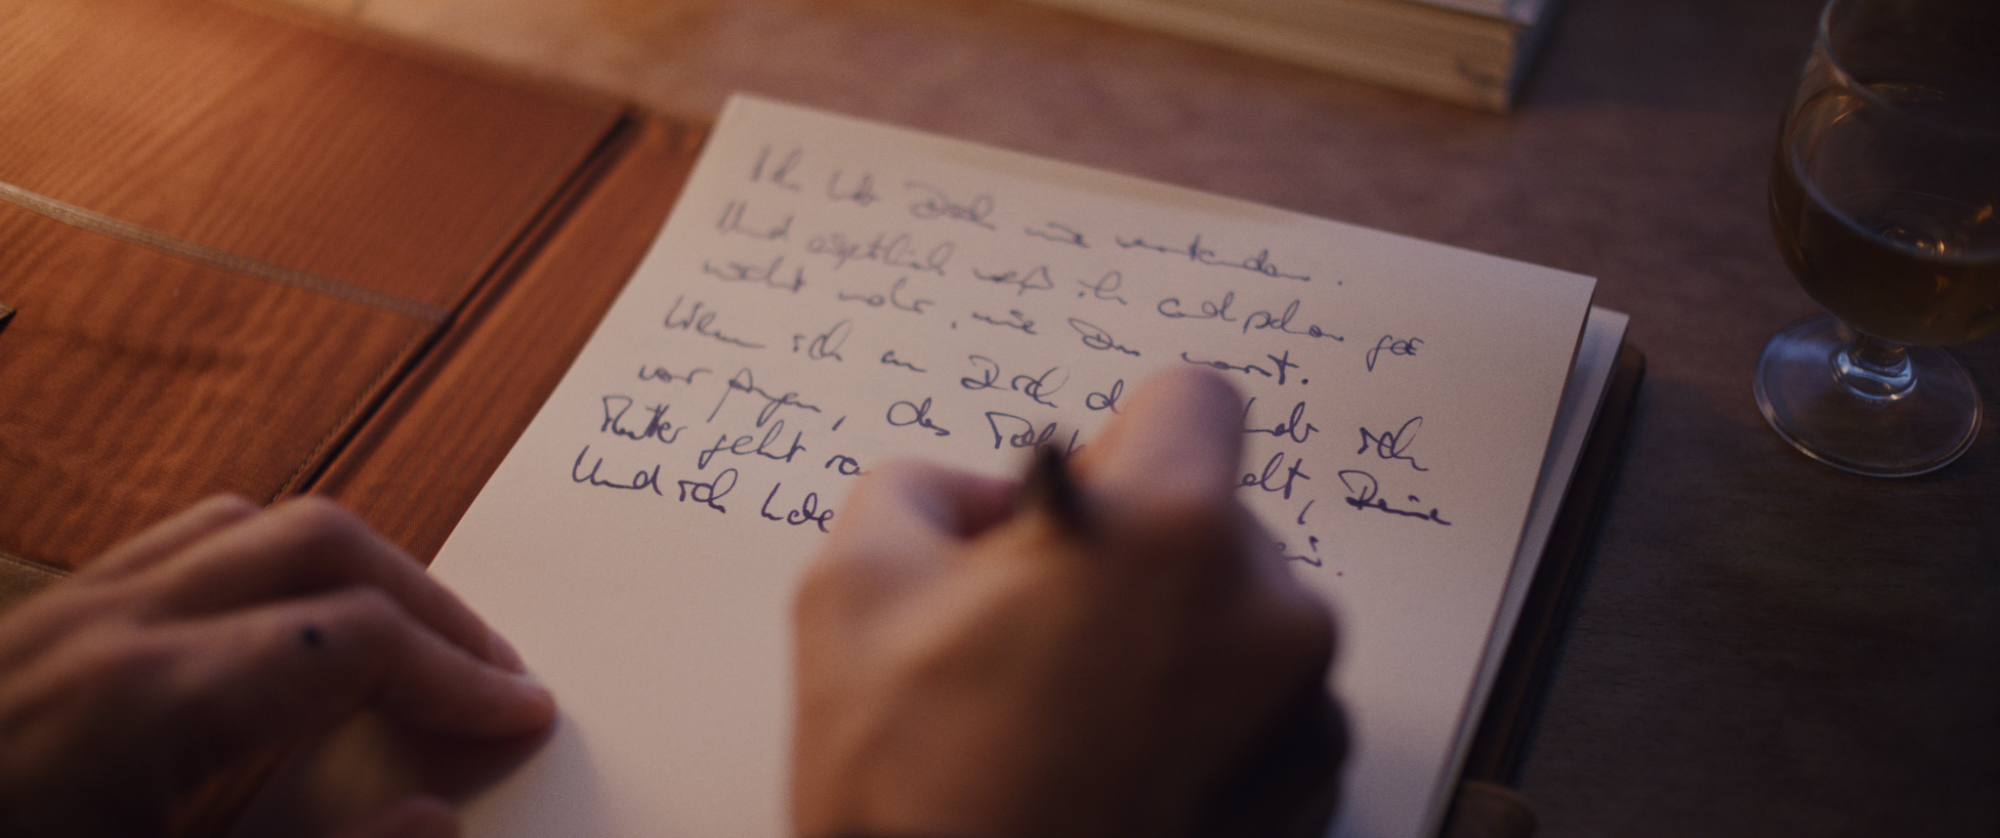 Ich hab Dich nie verstanden.
Und eigentlich weiß ich auch schon gar
nicht mehr, wie Du warst.
Wenn ich an Dich d hab ich
vor Augen, das elt, Deine
Mutter geht
Und ich habe ei.